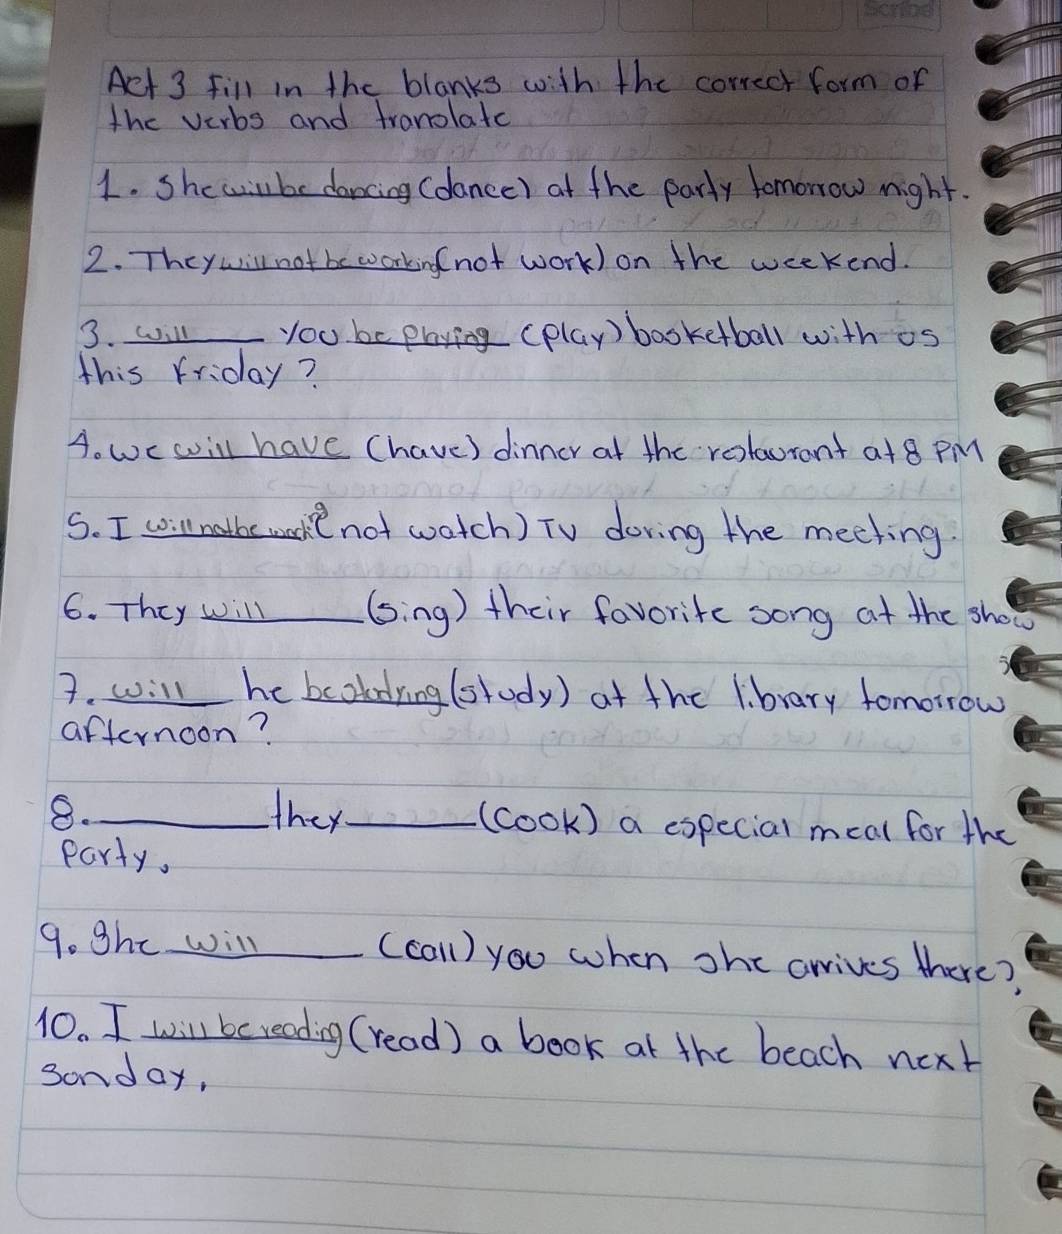 Scribe
Act 3 Fill in the blanks with the correct form of
the verbs and translate
1. She will be dancing (dance) at the party tomorrow night.
2. They will not be working (not work) on the weekend.
3. will you be playing (play) basketball with us
this Friday?
4. we will have (have) dinner at the restaurant at 8 PM
5. I will not be (not watch) TV during the meeting.
6. They will ____ (sing) their favorite song at the show
7. will he be studying (study) at the library tomorrow
afternoon?
8. ____ they ____ (cook) a especial meal for the
party.
9. She will ____ (call) you when she arrives there?
10. I will be reading (read) a book at the beach next
sunday.